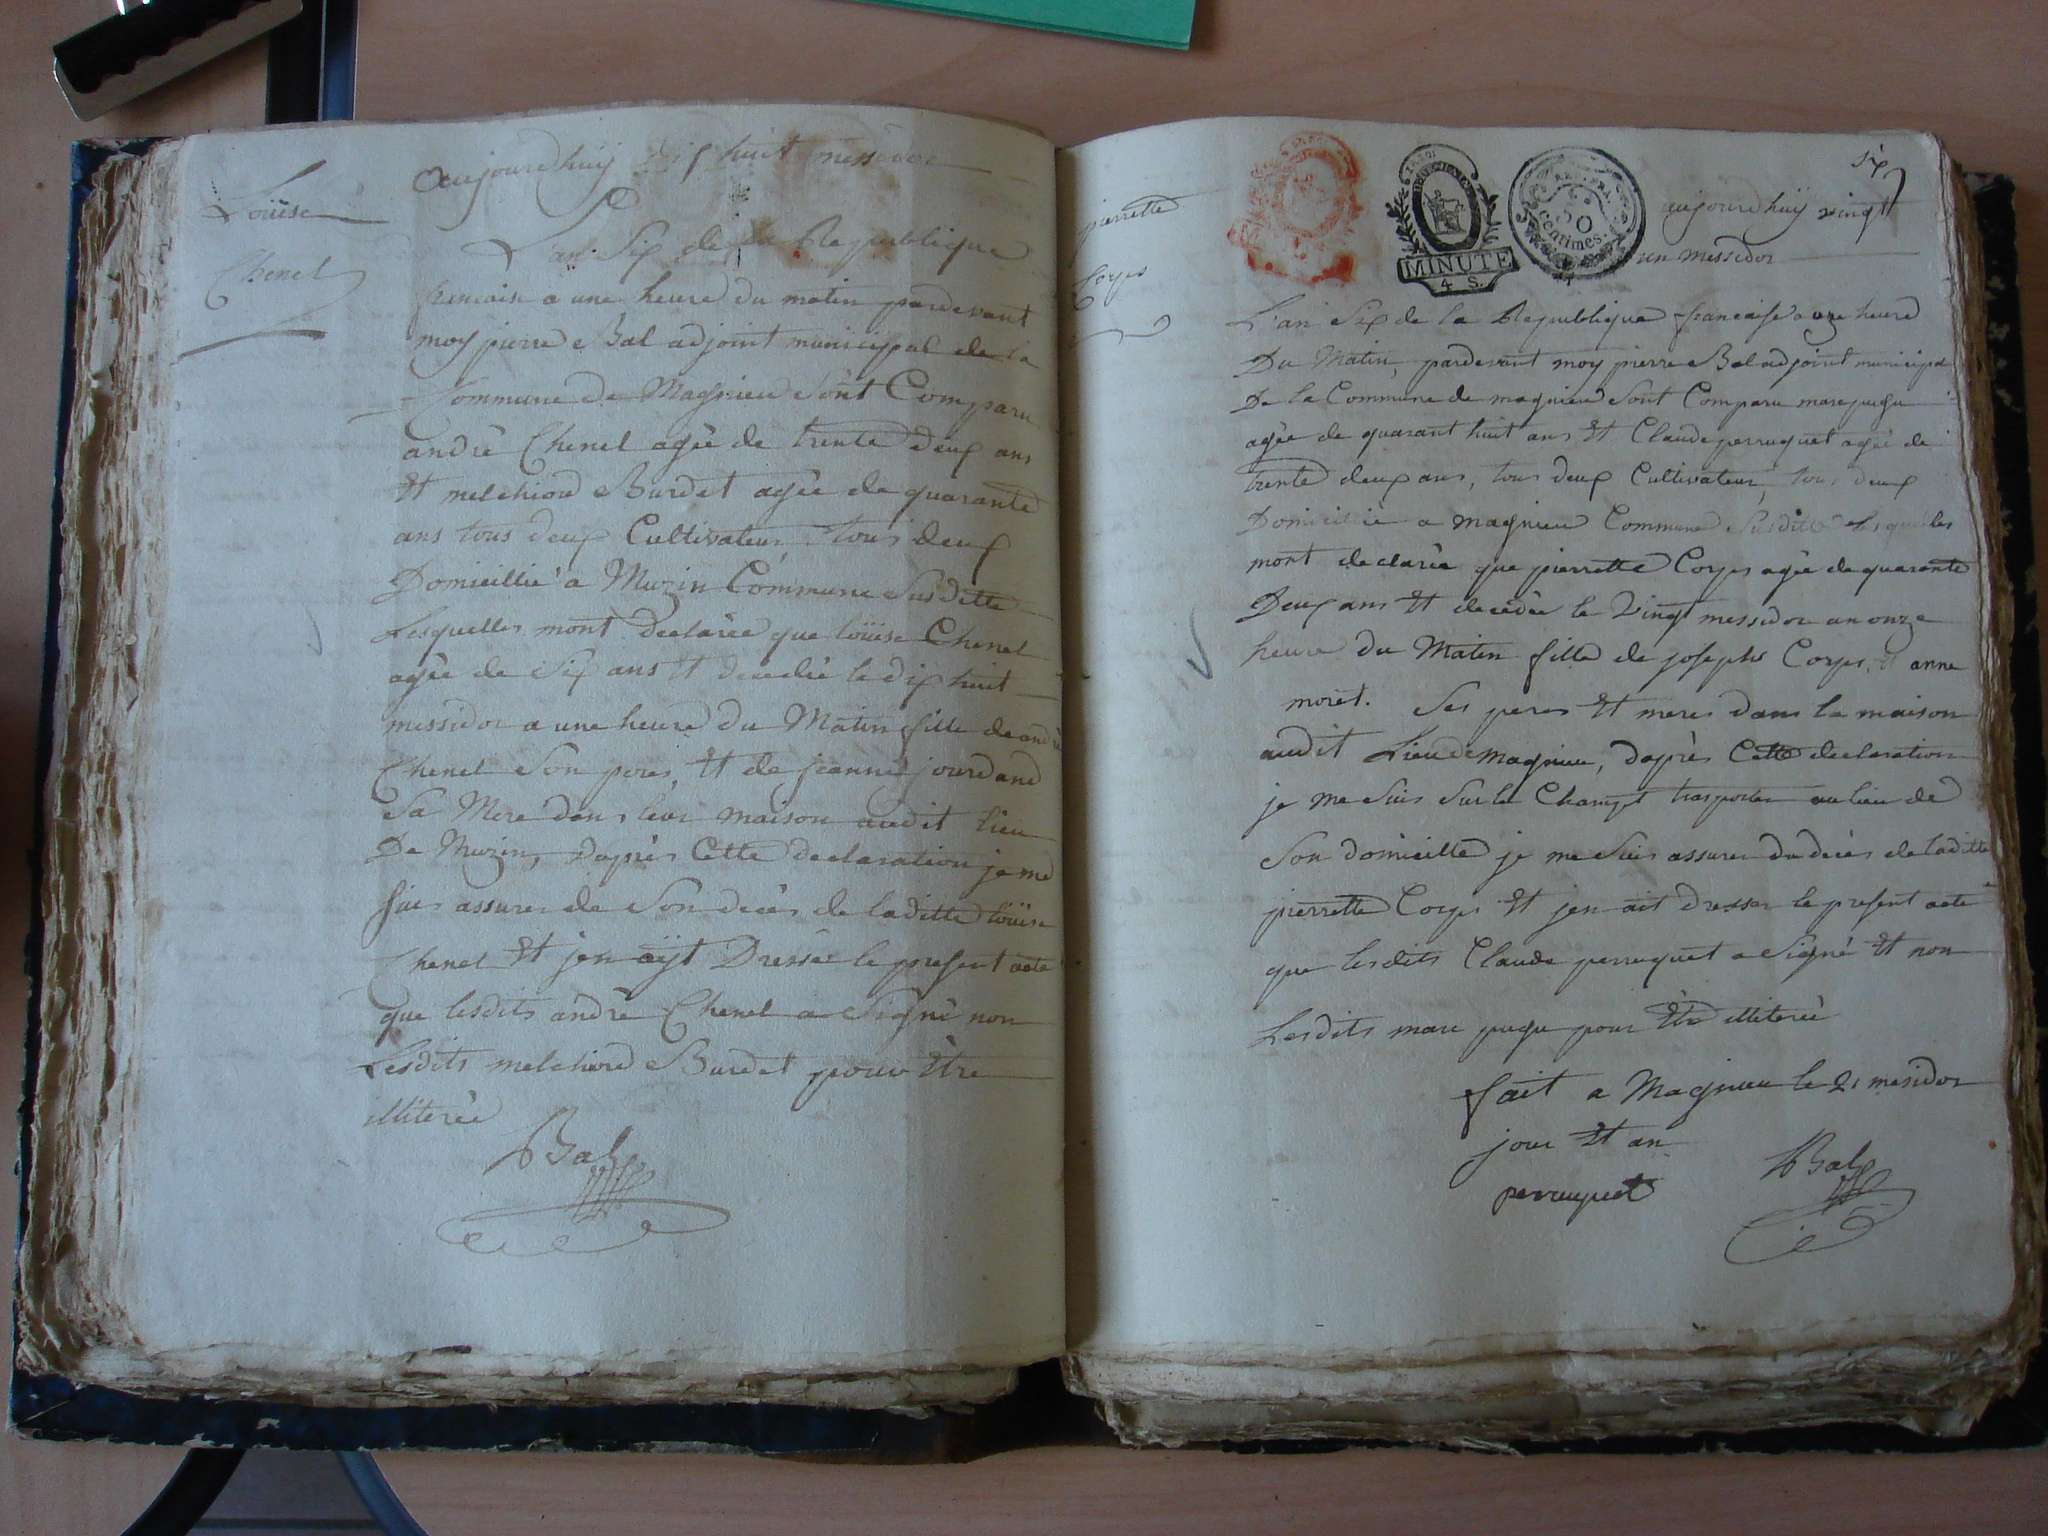 Loüise
Chenel
aujourdhuy dix huit messidor
L'an Six de la Republique
francaise a une heure du matin pardevant
moy pierre Bal adjoint municipal de la
Commune de Magnieu Sont Comparu
andrè Chenel agèe de trente deux ans
Et melchiord Burdet agèe de quarante
ans tous deux Cultivateur, tous deux
Domicillié a Muzin Commune Susditte
Lesquelles mont declarèe que loüise Chenel
agèe de Six ans Et decedèe le dix huit
messidor a une heure du Matin fille de andrè
Chenel Son pere, Et de jeanne jourdand
Sa Mere dans leur maison audit lieu
De Muzin, daprès Cette declaration je me
suis assurer de Son decès de laditte loüise
Chenel Et jen aÿt Dresser le present acte
que lesdits andrè Chenel a Signè non
Lesdits melchiord Burdet pour Être
illiterèe
Bal
pierrette
Corps
MINUTE
4 S.
50
centimes.
six
aujourdhuy vingt
un messidor
L'an Six de la Republique francaise a onze heure
Du Matin, pardevant moy pierre Bal adjoint municipal
De la Commune de magnieu Sont Comparu marc pugu
agèe de quarant huit ans Et Claude perruquet agèe de
trente deux ans, tous deux Cultivateur, tous deux
Domicilliè a magnieu Commune Susditte lesquelles
mont declarèe que pierrette Corps agèe de quarante
Deux ans Et decedèe le Vingt messidor an onze
heure du Matin fille de josephs Corps, Et anne
morèt. Ses peres Et meres dans la maison
audit Lieu de magnieu, daprès Cette declaration
je me Suis Sur le Champt trasporter au lieu de
Son domicille je me Suis assurer du decès de laditte
pierrette Corps Et jen ait dresser le present acte
que lesdits Claude perruquet a Signé Et non
Lesdits marc pugu pour Être illiterèe
fait a Magnieu le 21 mesidor
jour Et an
perruquet
Bal